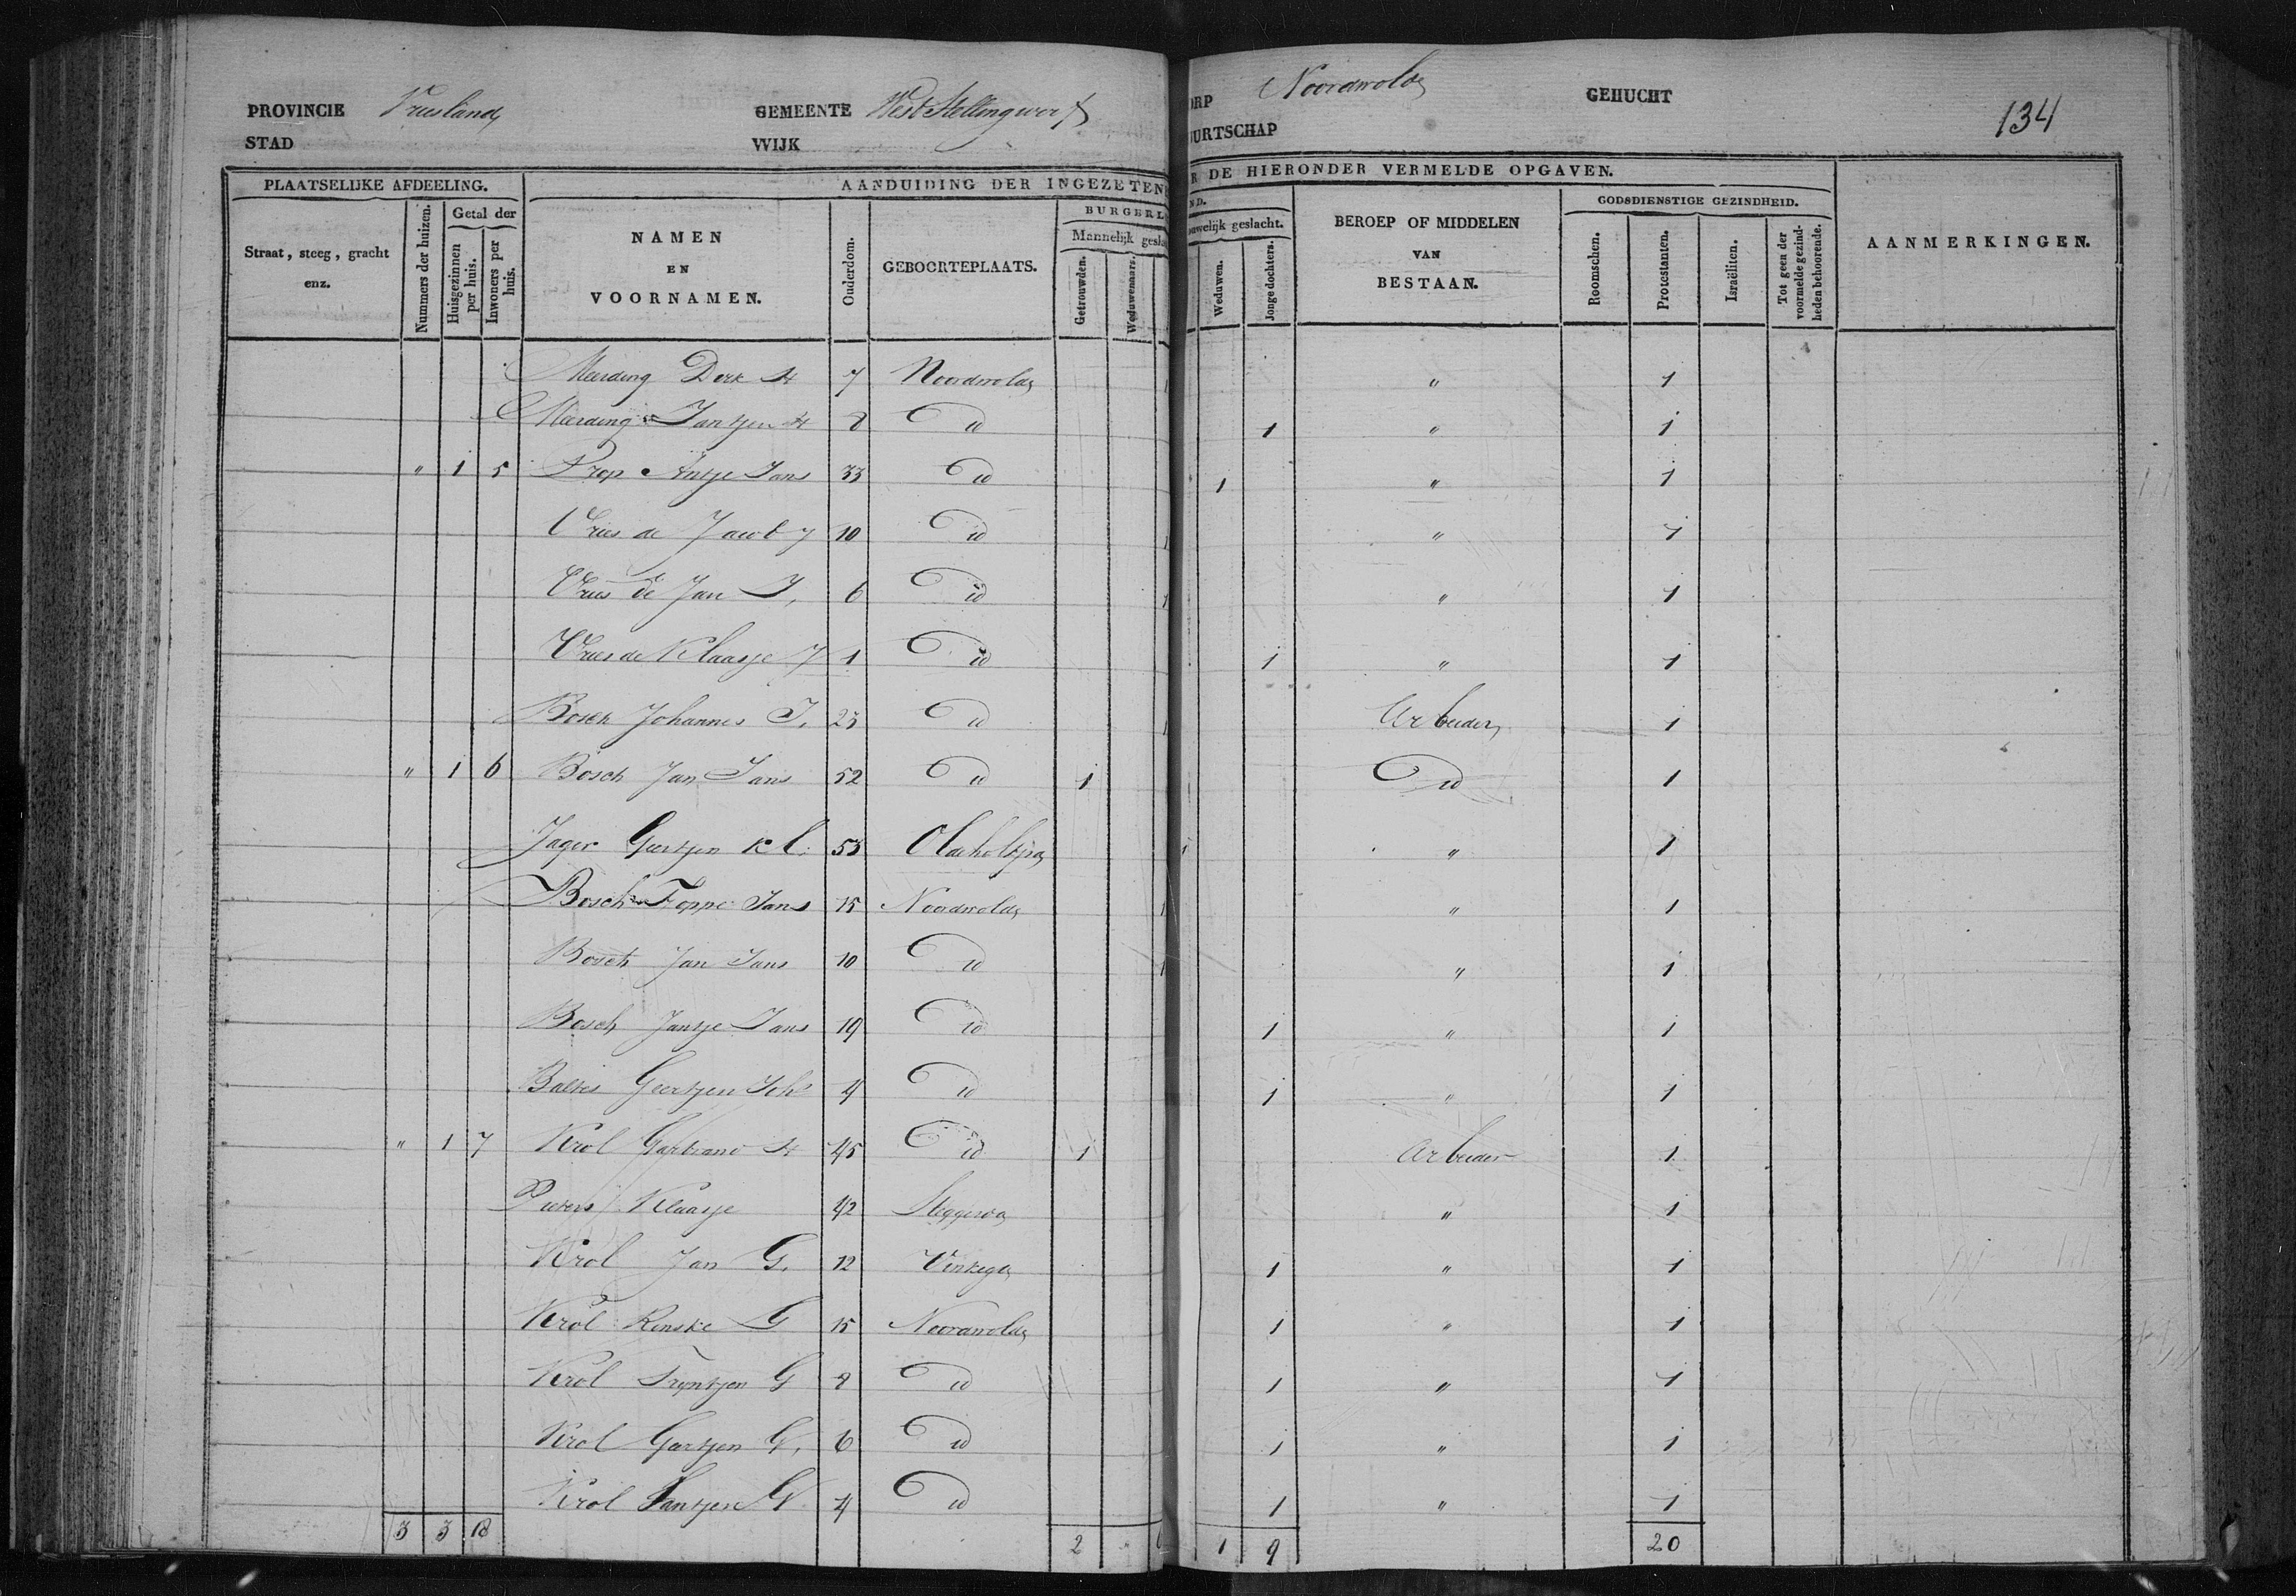 PROVINCIE Vriesland GEMEENTE West Stellingwerf ORP Noordwolde GEHUCHT 134
STAD WIJK UURTSCHAP
PLAATSELIJKE AFDEELING. AANDUIDING DER INGEZETEN R DE HIERONDER VERMELDE OPGAVEN.
Straat, steeg, gracht enz. Nummers der huizen. Getal der Huisgezinnen per huis. Inwoners per huis. NAMEN EN VOORNAMEN. Ouderdom. GEBOORTEPLAATS. BURGERL Mannelijk gesla Getrouwden. Weduwenaars. ND. uwelijk geslacht. Weduwen. Jonge dochters. BEROEP OF MIDDELEN VAN BESTAAN. GODSDIENSTIGE GEZINDHEID. Roomschen. Protestanten. Israëliten. Tot geen der voormelde gezindheden behoorende. AANMERKINGEN.
Meerding Derk H 7 Noordwolde 1 " 1
Meerding Jantjen H 8 Do 1 " 1
" 1 5 Prop Antje Jans 33 Do 1 " 1
Vries de Jacob J 10 Do 1 " 1
Vries de Jan J. 6 Do 1 " 1
Vries de Klaasje J 1 Do 1 " 1
Bosch Johannes J. 23 Do 1 Arbeider 1
" 1 6 Bosch Jan Jans 52 Do 1 Do 1
Jager Geertjen Kl. 53 1 " 1
Bosch Foppe Jans 15 Noordwolde 1 " 1
Bosch Jan Jans 10 Do 1 " 1
Bosch Jantje Jans 19 Do 1 " 1
Geertjen Joh 4 Do 1 " 1
" 1 7 Krol H 45 Do 1 Arbeider 1
Pieters Klaasje 42 Steggerda " 1
Krol Jan G. 12 Vinkega 1 " 1
Krol Renske G 15 Noordwolde 1 " 1
Krol Tryntjen G 8 Do 1 " 1
Krol Geertjen G. 6 Do 1 " 1
Krol Jantjen G 4 Do 1 " 1
3 3 18 2 1 9 20